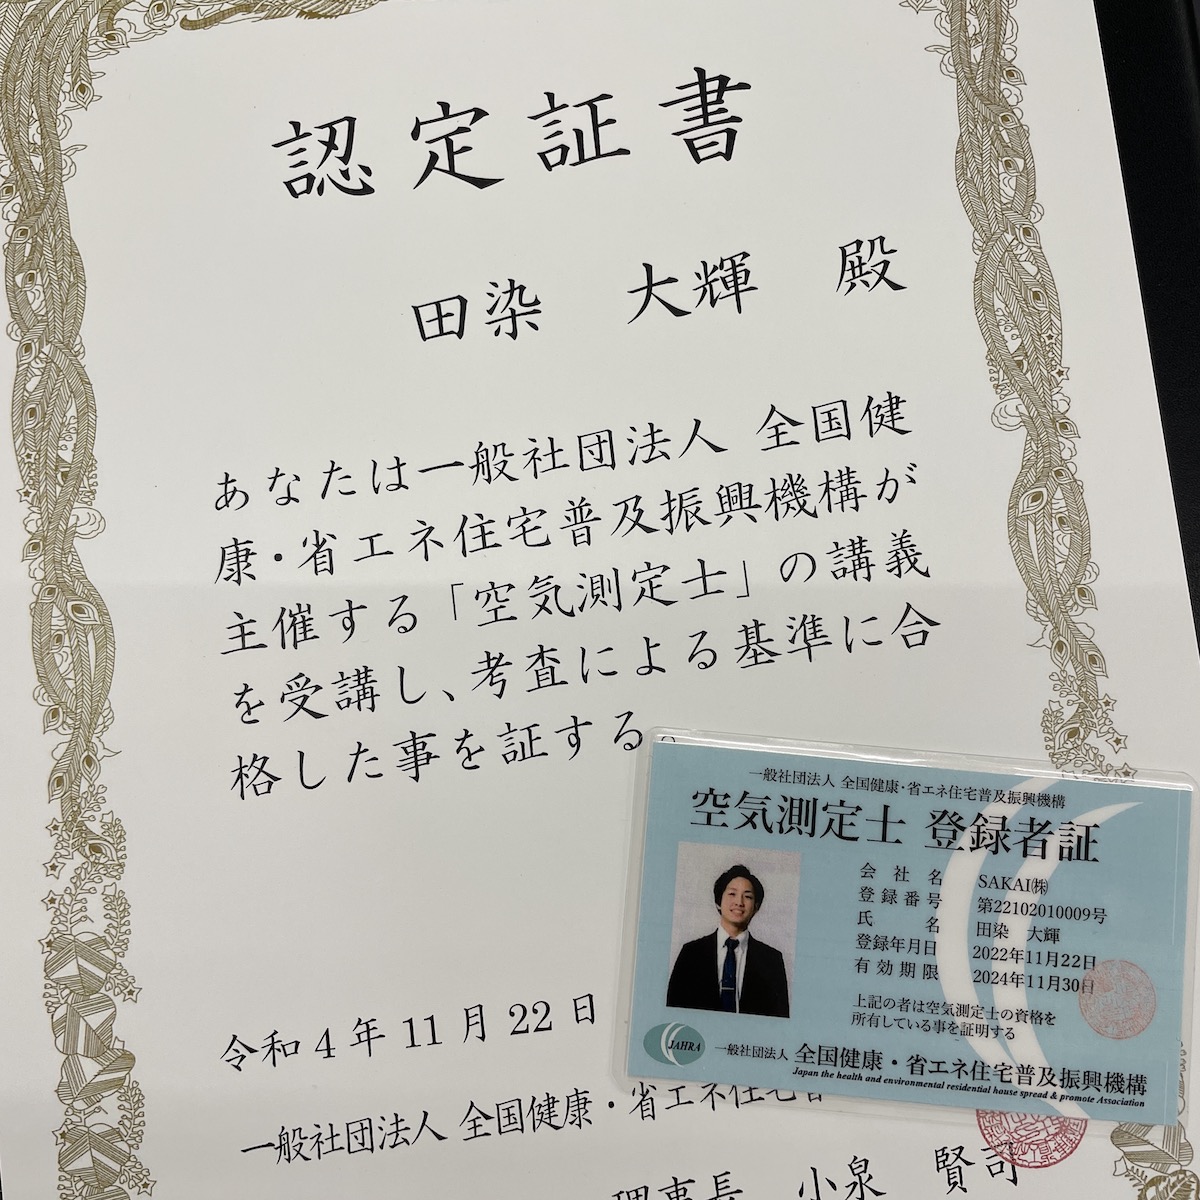 認定証書
田染 大輝 殿
あなたは一般社団法人 全国健
康・省エネ住宅普及振興機構が
主催する「空気測定士」の講義
を受講し、考査による基準に合
格した事を証する。
令和4年11月22日
一般社団法人 全国健康・省エネ住宅普
理事長 小泉 賢司
一般社団法人 全国健康・省エネ住宅普及振興機構
空気測定士 登録者証
会社名 SAKAI㈱
登録番号 第22102010009号
氏名 田染 大輝
登録年月日 2022年11月22日
有効期限 2024年11月30日
上記の者は空気測定士の資格を
所有している事を証明する
JAHRA
一般社団法人 全国健康・省エネ住宅普及振興機構
Japan the health and environmental residential house spread & promote Association